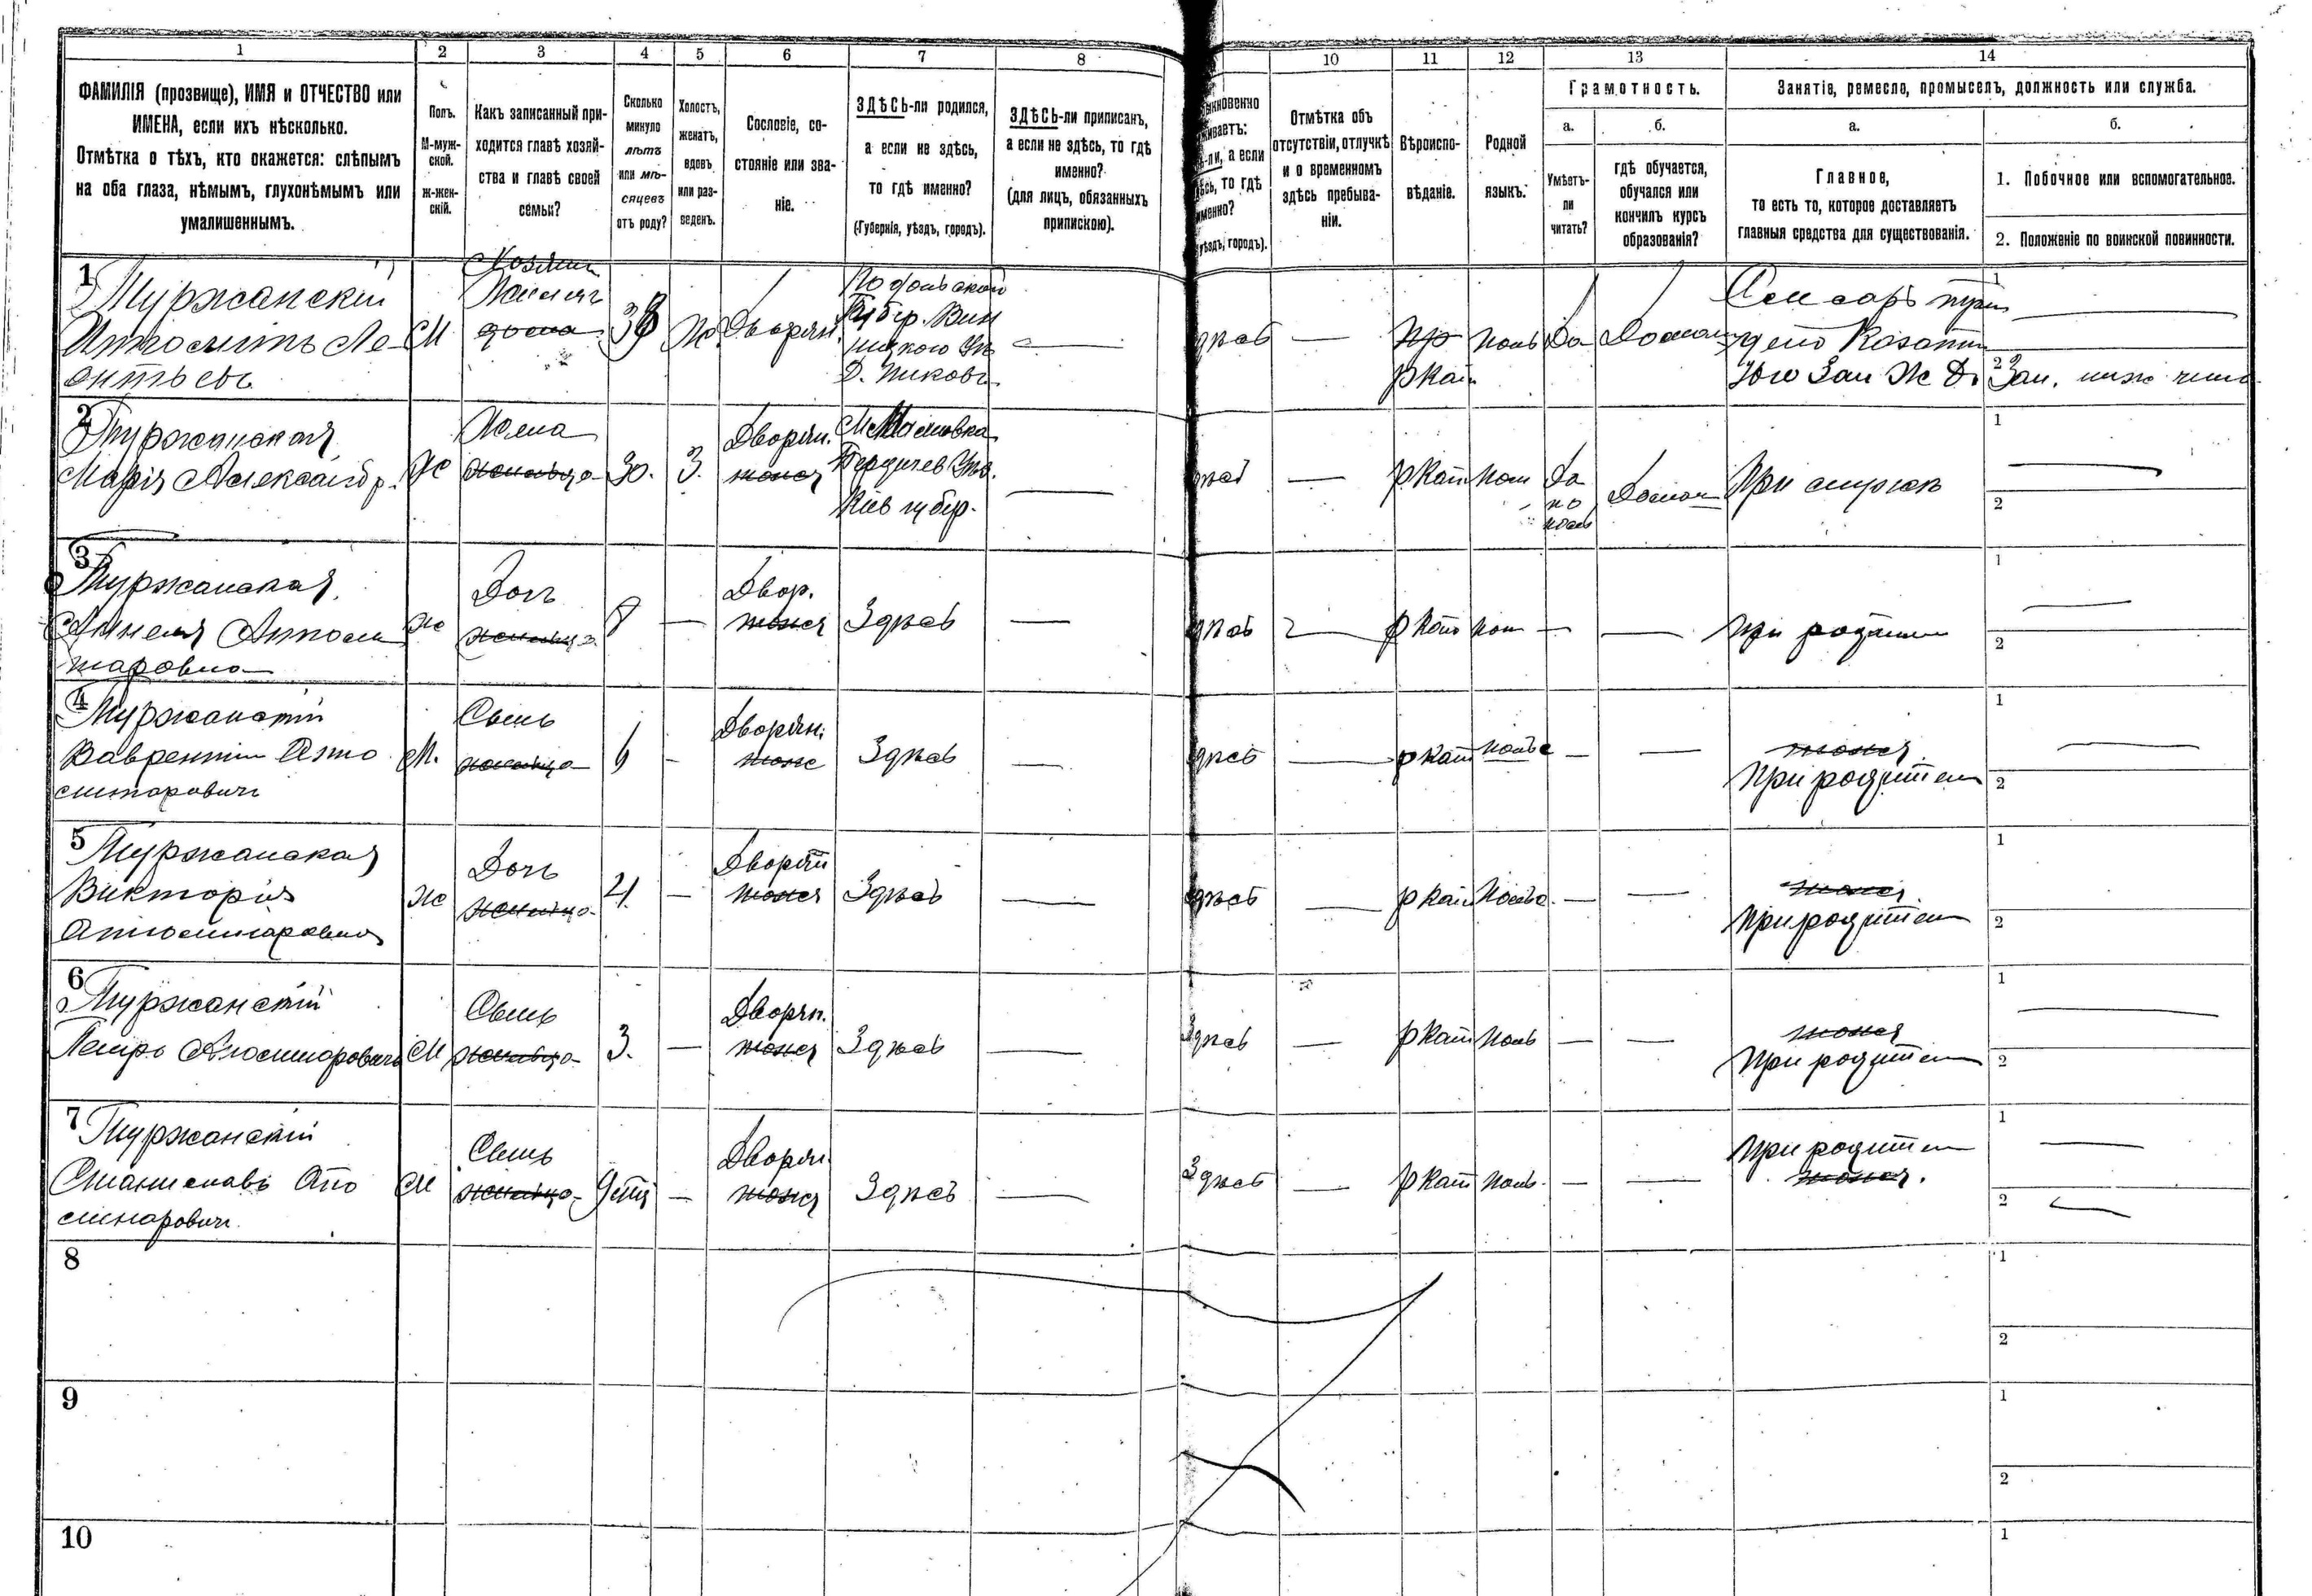 1 2 3 4 5 6 7 8 10 11 12 13 14
ФАМИЛІЯ (прозвище), ИМЯ и ОТЧЕСТВО или
ИМЕНА, если ихъ нѣсколько.
Отмѣтка о тѣхъ, кто окажется: слѣпымъ
на оба глаза, нѣмымъ, глухонѣмымъ или
умалишеннымъ.
Полъ.
М-муж-
ской.
ж-жен-
скій.
Какъ записанный при-
ходится главѣ хозяй-
ства и главѣ своей
семьи?
Сколько
минуло
лѣтъ
или мѣ-
сяцевъ
отъ роду?
Холостъ,
женатъ,
вдовъ
или раз-
веденъ.
Сословіе, со-
стояніе или зва-
ніе.
ЗДѢСЬ-ли родился,
а если не здѣсь,
то гдѣ именно?
(Губернія, уѣздъ, городъ).
ЗДѢСЬ-ли приписанъ,
а если не здѣсь, то гдѣ
именно?
(для лицъ, обязанныхъ
припискою).
-ли, а если
то гдѣ
уѣздъ, городъ).
Отмѣтка объ
отсутствіи, отлучкѣ
и о временномъ
здѣсь пребыва-
ніи.
Вѣроиспо-
вѣданіе.
Родной
языкъ.
Грамотность.
а.
Умѣетъ-
ли
читать?
б.
гдѣ обучается,
обучался или
кончилъ курсъ
образованія?
Занятіе, ремесло, промыселъ, должность или служба.
а.
Главное,
то есть то, которое доставляетъ
главныя средства для существованія.
б.
1. Побочное или вспомогательное.
2. Положеніе по воинской повинности.
1
Туржанскій
Ле-
онтьевъ
М
Хозяинъ
38
Ж
Дворян.
Подольской
Губер. Вин
ницкого Уѣ
Д. Пиковъ
—
—
р кат
поль
Да
Домаш
Слесарь при
депо Козатин
Юго Зап Ж Д.
1
2 Зап. ниж чин
2
Туржанская
Марія Александр.
Ж
Жена
30.
З.
Дворян.
Бердичев Уѣз.
Кіев губер.
—
—
р кат
пол
Да
по
поль
Домаш
При мужѣ
1
2
3
Туржанская
Анеля Аполи
наровна
Ж
Дочь
8
—
Двор.
Здѣсь
—
—
р кат
пол
—
—
При родител
1
2
4
Туржанскій
Лаврентій Апо
линаровичъ
М.
Сынъ
6
—
Дворян.
Здѣсь
—
—
р кат
польс
—
—
При родител
1
2
5
Туржанская
Викторія
Аполинаровна
Ж
Дочь
4.
—
Дворян
Здѣсь
—
—
р кат
польс.
—
—
При родител
1
2
6
Туржанскій
Петръ Аполинаровичъ
М
Сынъ
3.
—
Дворян.
Здѣсь
—
Здѣсь
—
р кат
поль
—
—
При родител
1
2
7
Туржанскій
Станиславъ Апо
линарович.
М
Сынъ
—
Дворян.
Здѣсь
—
Здѣсь
—
р кат
поль.
—
—
При родител
1
2
8
1
2
9
1
2
10
1